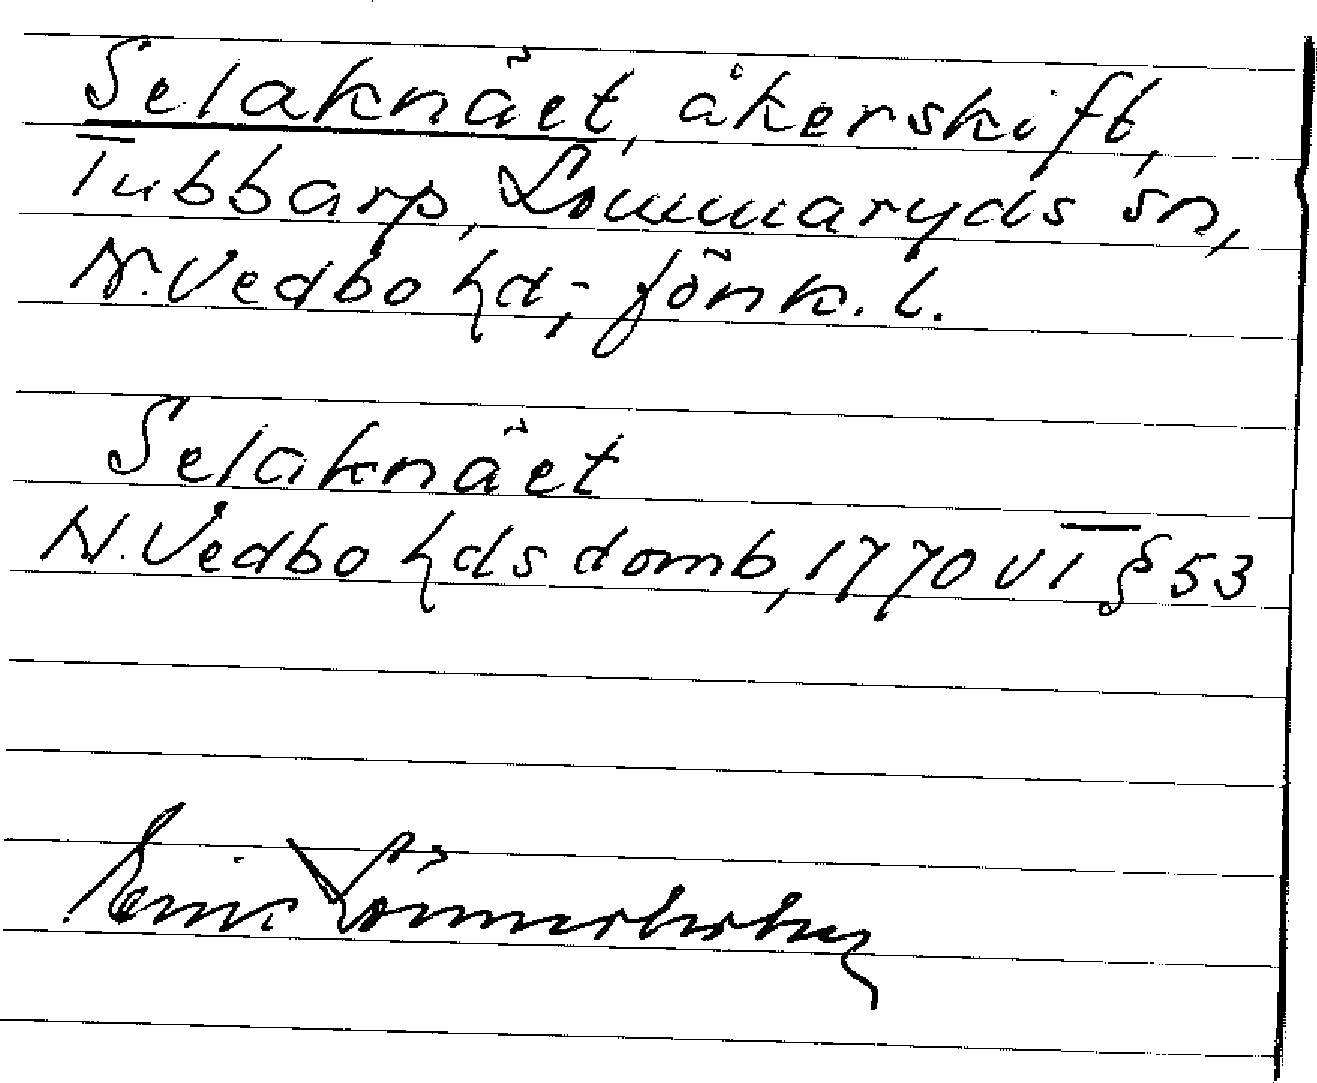 Selaknäet, åkerskift,
Tubbarp, Lommaryds sn,
N. Vedbo hd, Jönk. l.
Selaknäet
N. Vedbo hds domb, 1770 VI § 53